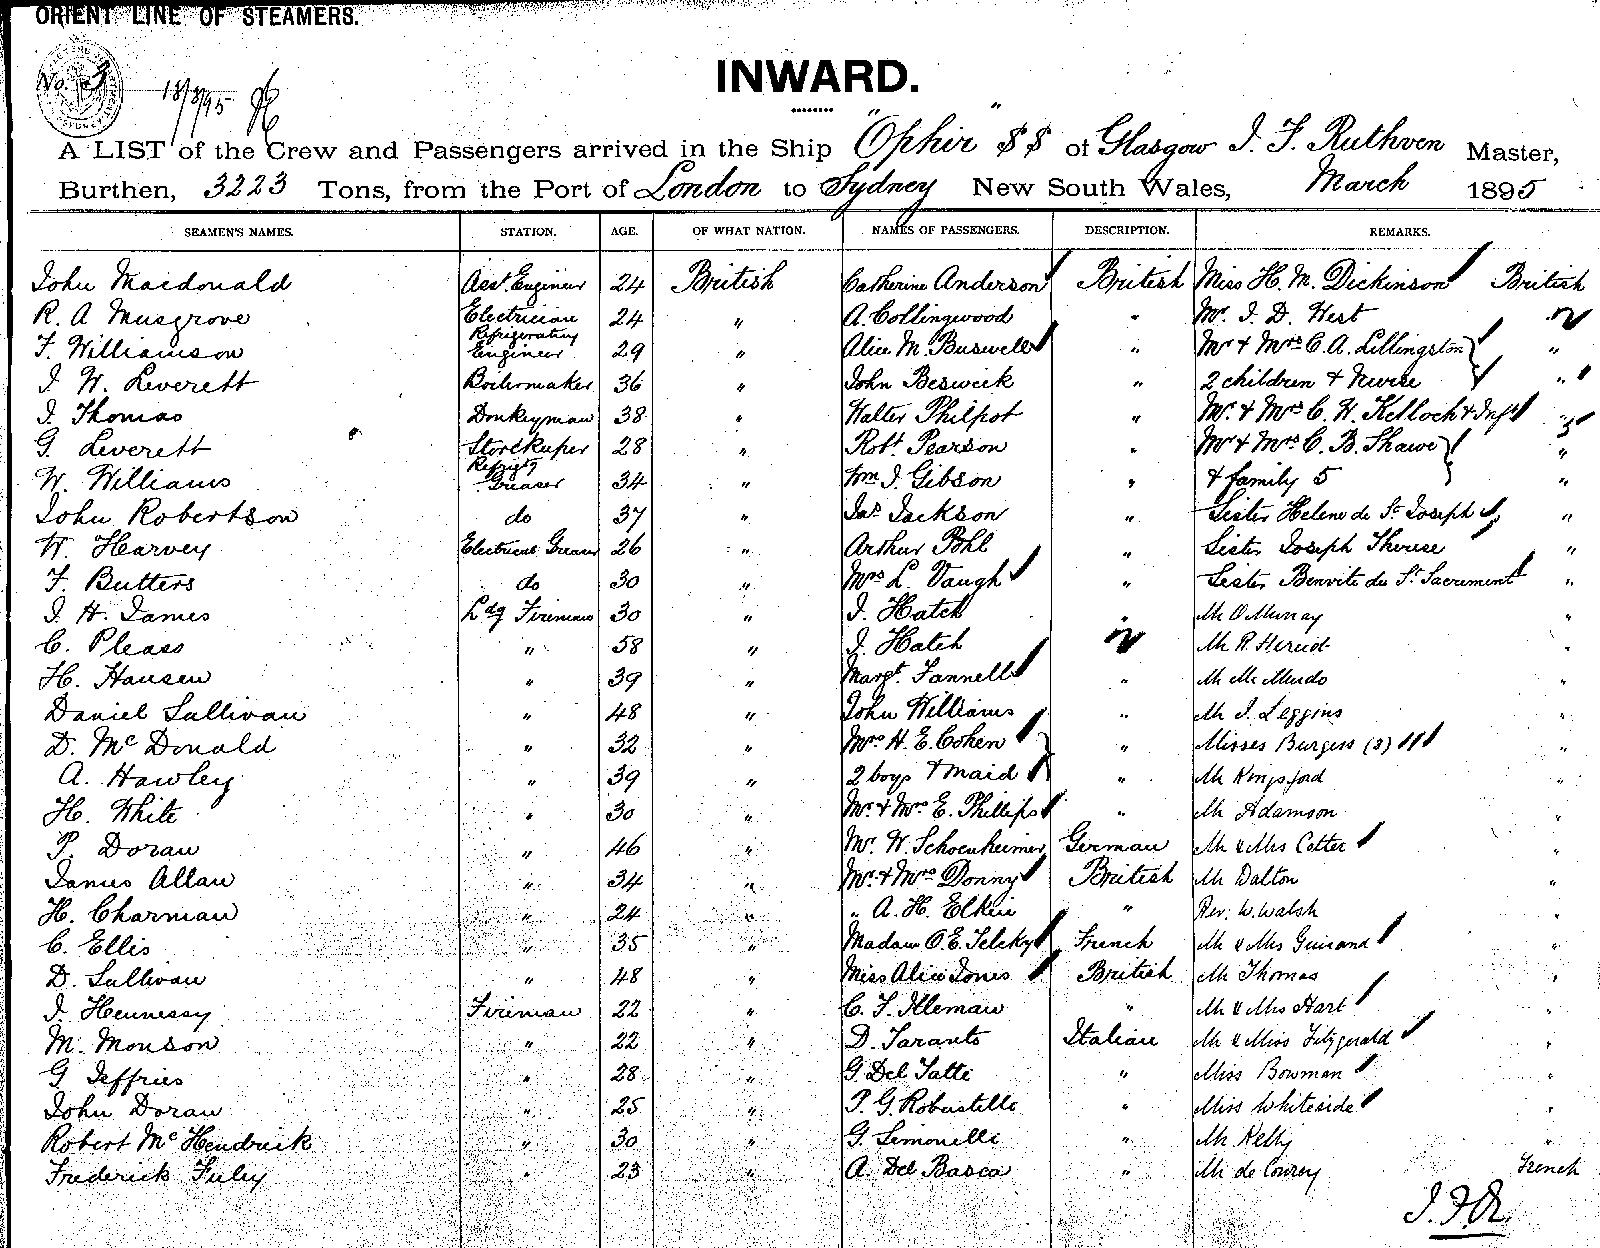 ORIENT LINE OF STEAMERS.
No. 3
18/3/95
INWARD.
A LIST of the Crew and Passengers arrived in the Ship "Ophir" SS of Glasgow J. F. Ruthven Master,
Burthen, 3223 Tons, from the Port of London to Sydney New South Wales, March 1895
SEAMEN'S NAMES. STATION. AGE. OF WHAT NATION. NAMES OF PASSENGERS. DESCRIPTION. REMARKS.
John Macdonald Asst. Engineer 24 British Catherine Anderson British Miss H. M. Dickinson British
R. A Musgrove Electrician 24 " A. Collingwood " Mr. J. D. West "
F. Williamson Refrigerating Engineer 29 " Alice M. Buswell " Mr & Mrs C. A. Lillingston "
J. W. Leverett Boilermaker 36 " John Beswick " 2 children & Nurse "
J. Thomas Donkeyman 38 " Walter Philpot " Mr. & Mrs C. W. Kelloch & Inft "
G. Leverett Storekeeper 28 " Robt. Pearson " Mr & Mrs C. B. Shawe "
W. Williams Refrigtg Greaser 34 " Wm J. Gibson " & family 5 "
John Robertson do 37 " Jas Jackson " Sister Helene de St Joseph "
W. Harvey Electrical Greaser 26 " Arthur Pohl " Sister Joseph Therese "
F. Butters do 30 " Mrs L. Vaugh " Sister Benvite du St Sacrament "
J. H. James Ldg Fireman 30 " J. Hatch " Mr O Murray "
C. Pleass " 58 " J. Hatch " Mr R. Herud "
H. Hansen " 39 " Margt. Fannell " Mr McMurdo "
Daniel Sullivan " 48 " John Williams " Mr J. Leggins "
D. McDonald " 32 " Mrs H. E. Cohen " Misses Burgess (3) "
A. Hawley " 39 " 2 boys & maid " Mr Kingsford "
H. White " 30 " Mr & Mrs E. Phillips " Mr Adamson "
P. Doran " 46 " Mr. W. Schoenheimer German Mr & Mrs Cotter "
James Allan " 34 " Mr. & Mrs Donny British Mr Dalton "
H. Charman " 24 " " A. H. Elkin " Rev. W. Walsh "
C. Ellis " 35 " Madam O. E. Telcky French Mr & Mrs Guirand "
D. Sullivan " 48 " Miss Alice Jones British Mr Thomas "
J. Hennessy Fireman 22 " C. F. Kleman " Mr & Mrs Hart "
M. Monson " 22 " D. Taranto Italian Mr & Miss Fitzgerald "
G Jeffries " 28 " G. Del Tatte " Miss Bowman "
John Doran " 25 " P. G. Robustelle " Miss Whiteside "
Robert McHendrick " 30 " G. Simonelli " Mr Kelly "
Frederick Fuley " 23 " A. Del Basca " Mr de Courcy French
J.F.R.